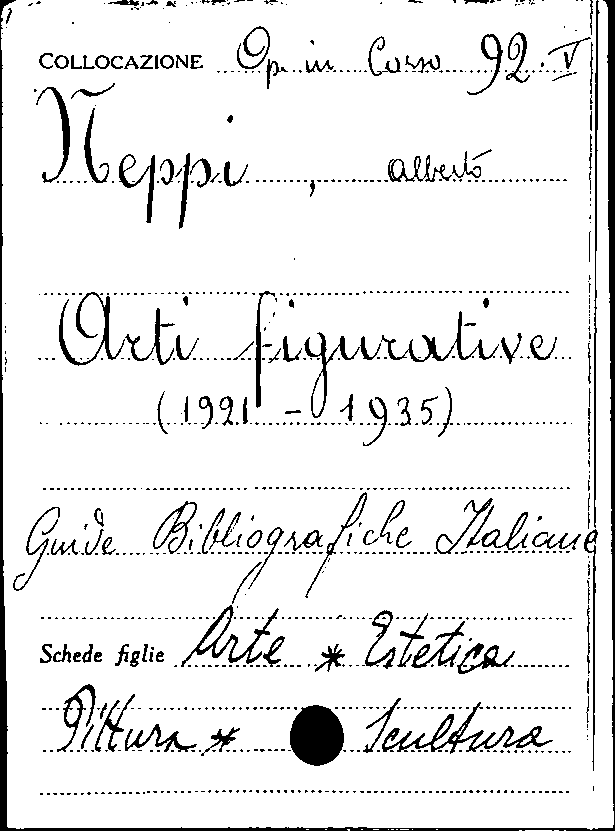 COLLOCAZIONE Op. in Corso 92. V
Neppi, Alberto
Arti figurative
(1921 - 1935)
Guide Bibliografiche Italiane
Schede figlie Arte * Estetica
Pittura * Scultura